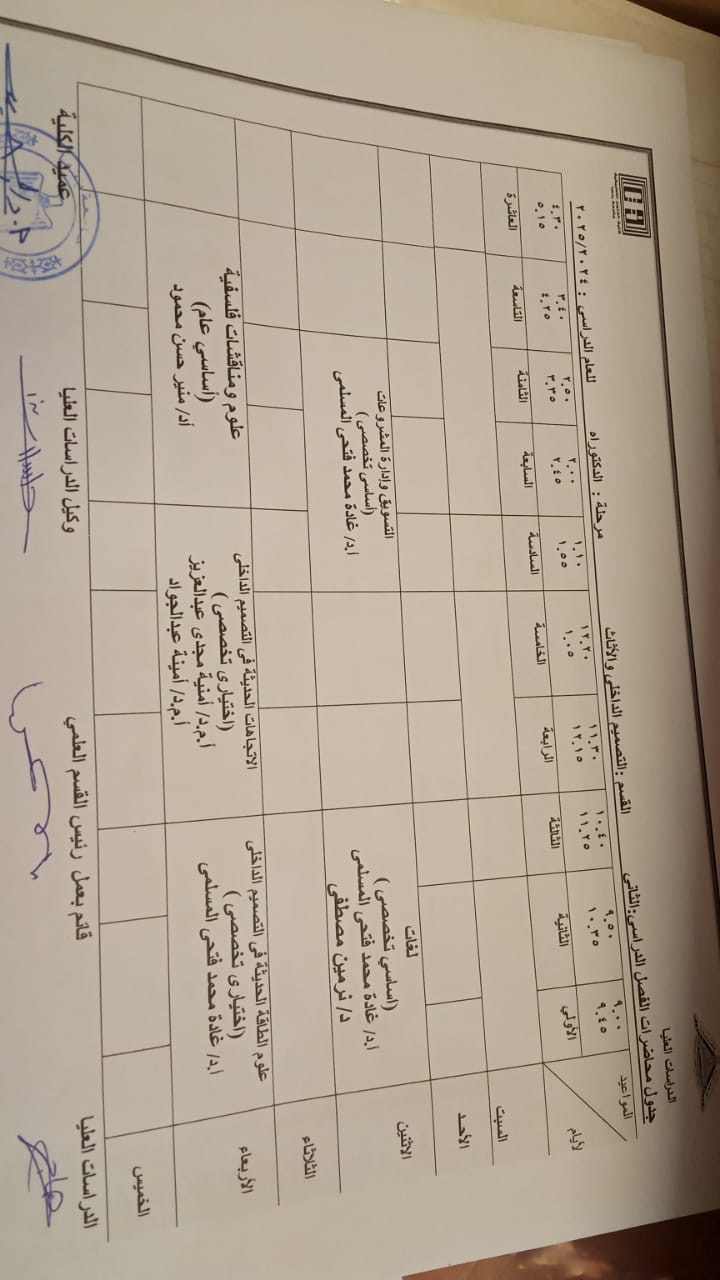 الدراسات العليا
جدول محاضرات الفصل الدراسي:الثانى القسم :التصميم الداخلى والأثاث مرحلة : الدكتوراه للعام الدراسى : ٢٠٢٥/٢٠٢٤
المواعيد ٩.٠٠ ٩.٥٠ ١٠.٤٠ ١١.٣٠ ١٢.٢٠ ١.١٠ ٢.٠٠ ٢.٥٠ ٣.٤٠ ٤.٣٠
٩.٤٥ ١٠.٣٥ ١١.٢٥ ١٢.١٥ ١.٠٥ ١.٥٥ ٢.٤٥ ٣.٣٥ ٤.٢٥ ٥.١٥
لأيام الأولي الثانية الثالثة الرابعة الخامسة السادسة السابعة الثامنة التاسعة العاشرة
السبت
الأحد
الاثنين
لغات
(اساسي تخصصى )
أ.د/ غادة محمد فتحى المسلمى
د/ نرمين مصطفى
التسويق وإدارة المشروعات
(أساسى تخصصى)
أ.د/ غادة محمد فتحى المسلمى
الثلاثاء
الأربعاء
علوم الطاقة الحديثة فى التصميم الداخلى
(اختيارى تخصصى )
أ.د/ غادة محمد فتحى المسلمى
الاتجاهات الحديثة فى التصميم الداخلى
(اختيارى تخصصى )
أ.م.د/ أمنية مجدى عبدالعزيز
أ.م.د/ أمينة عبدالجواد
علوم ومناقشات فلسفية
(أساسي عام)
أد/ منير حسن محمود
الخميس
الدراسات العليا قائم بعمل رئيس القسم العلمي وكيل الدراسات العليا عميد الكلية